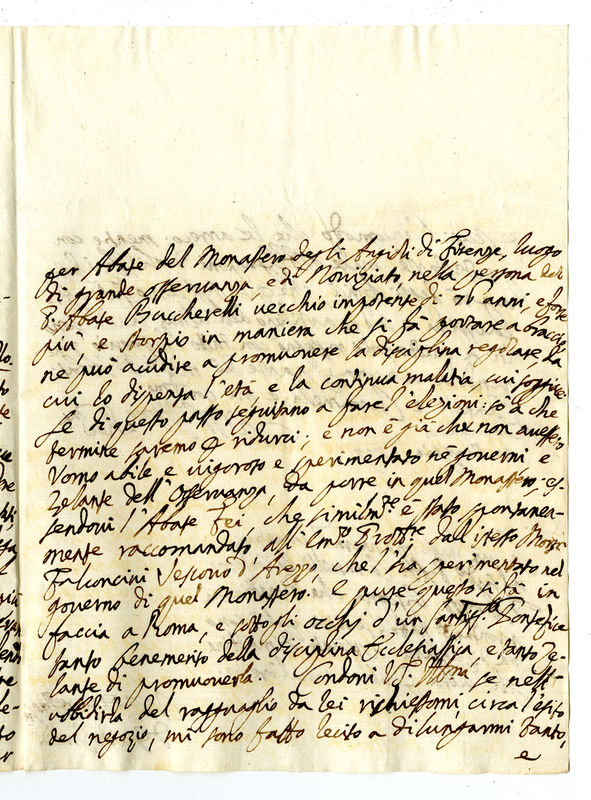 per Abate del Monastero degli Angioli di Firenze, luogo
di grande osservanza, e di Noviziato, nella persona del
P. Abate Buccherelli vecchio impotente di 76 anni, e forse
più, e storpio in maniera che si fà portare a braccia,
ne può accudire a promuovere la disciplina regolare, da
cui lo dispensa l'età e la continua malatia, cui soggiace
Se di questo passo seguitano a fare l'elezioni: sò à che
termine saremo per ridurci; e non è già che non avessero
Vomo abile e vigoroso e sperimentato ne' governi e
Zelante dell'Osservanza, da porre in quel Monastero, es-
sendovi l'Abate Fei, che similmte è stato spontanea-
mente raccomandato all'Emo Prottre dal istesso Monsr
Falconcini Vescovo d'Arezzo, che l'hà sperimentato nel
governo di quel Monastero. E pure questo si fà in
faccia a Roma, e sotto gli occhj d'un santissmo Pontefice
tanto benemerito della disciplina Ecclesiastica, e tanto Ze-
lante di promuoverla. Condoni V.S. Illma, se nell'-
ubbidirla del ragguaglio da lei richiestomi circa l'esito
del negozio, mi sono fatto lecito a dilungarmi tanto,
e